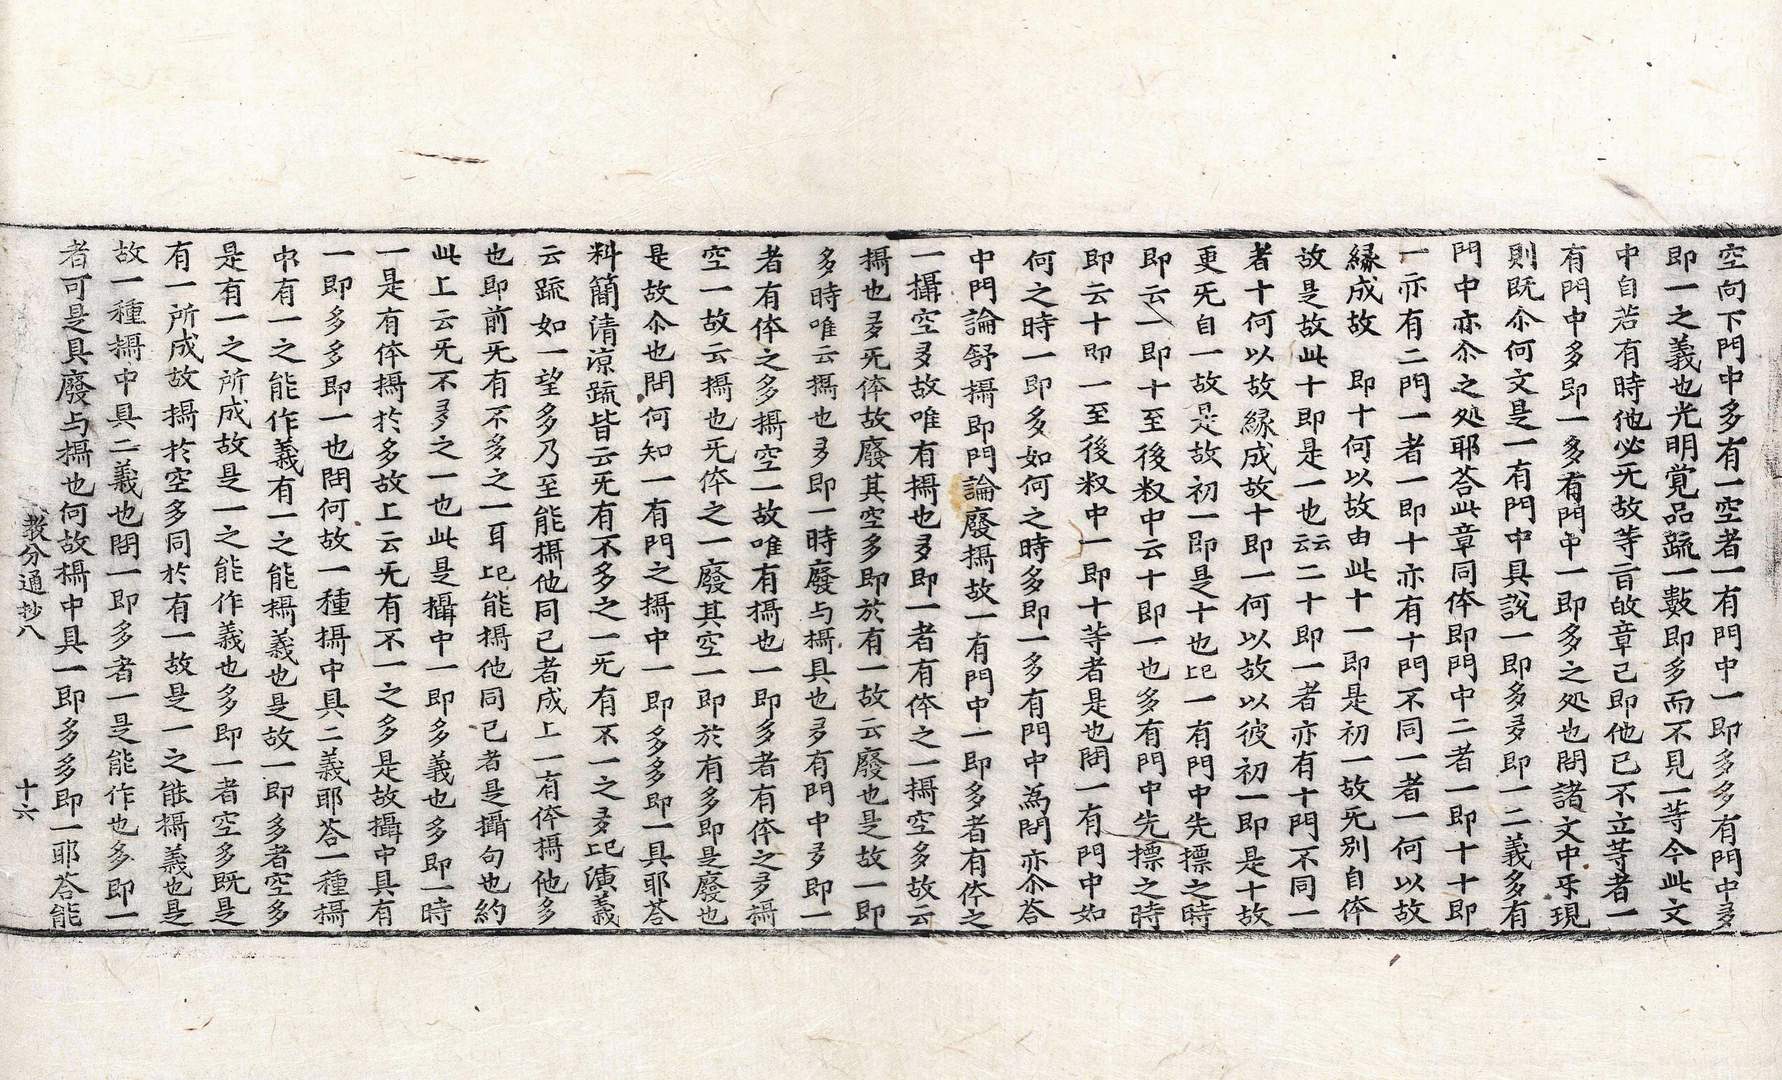 空向下門中多有一空者一有門中一即多多有門中多
即一之義也光明覚品䟽一數即多而不見一等今此文
中自若有時他必旡故等言故章己即他已不立等者一
有門中多即一多有門中一即多之処也問諸文中不現
則既尒何文是一有門中具說一即多多即一二義多有
門中亦尒之処耶荅此章同体即門中二者一即十十即
一亦有二門一者一即十亦有十門不同一者一何以故
緣成故　即十何以故由此十一即是初一故旡別自体
故是故此十即是一也云云二十即一者亦有十門不同一
者十何以故緣成故十即一何以故以彼初一即是十故
更旡自一故是故初一即是十也已一有門中先摽之時
即云一即十至後釈中云十即一也多有門中先摽之時
即云十即一至後釈中一即十等者是也問一有門中如
何之時一即多如何之時多即一多有門中為問亦尒荅
中門論舒攝即門論廢攝故一有門中一即多者有体之
一攝空多故唯有攝也多即一者有体之一攝空多故云
攝也多旡体故廢其空多即於有一故云廢也是故一即
多時唯云攝也多即一時廢与攝具也多有門中多即一
者有体之多攝空一故唯有攝也一即多者有体之多攝
空一故云攝也旡体之一廢其空一即於有多即是廢也
是故尒也問何知一有門之攝中一即多多即一具耶荅
料簡清凉䟽皆云旡有不多之一旡有不一之多已演義
云䟽如一望多乃至能攝他同己者成上一有体攝他多
也即前旡有不多之一耳已能攝他同己者是攝句也約
此上云旡不多之一也此是攝中一即多義也多即一時
一是有体攝於多故上云旡有不一之多是故攝中具有
一即多多即一也問何故一種攝中具二義耶荅一種攝
中有一之能作義有一之能攝義也是故一即多者空多
是有一之所成故是一之能作義也多即一者空多既是
有一所成故攝於空多同於有一故是一之能攝義也是
故一種攝中具二義也問一即多者一是能作也多即一
者可是具廢与攝也何故攝中具一即多多即一耶荅能
教分通抄八　十六